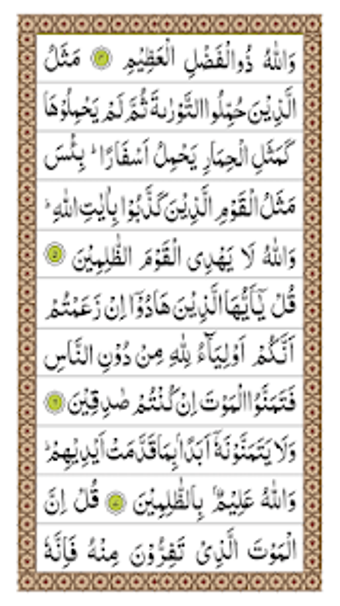 وَاللّٰهُ ذُوالْفَضْلِ الْعَظِيْمِ ۝۴ مَثَلُ
الَّذِيْنَ حُمِّلُوا التَّوْرٰىةَ ثُمَّ لَمْ يَحْمِلُوْهَا
كَمَثَلِ الْحِمَارِ يَحْمِلُ اَسْفَارًا ؕ بِئْسَ
مَثَلُ الْقَوْمِ الَّذِيْنَ كَذَّبُوْا بِاٰيٰتِ اللّٰهِ ؕ
وَاللّٰهُ لَا يَهْدِى الْقَوْمَ الظّٰلِمِيْنَ ۝۵
قُلْ يٰٓاَيُّهَا الَّذِيْنَ هَادُوْٓا اِنْ زَعَمْتُمْ
اَنَّكُمْ اَوْلِيَآءُ لِلّٰهِ مِنْ دُوْنِ النَّاسِ
فَتَمَنَّوُا الْمَوْتَ اِنْ كُنْتُمْ صٰدِقِيْنَ ۝۶
وَلَا يَتَمَنَّوْنَهٗٓ اَبَدًۢا بِمَا قَدَّمَتْ اَيْدِيْهِمْ ؕ
وَاللّٰهُ عَلِيْمٌۢ بِالظّٰلِمِيْنَ ۝۷ قُلْ اِنَّ
الْمَوْتَ الَّذِىْ تَفِرُّوْنَ مِنْهُ فَاِنَّهٗ